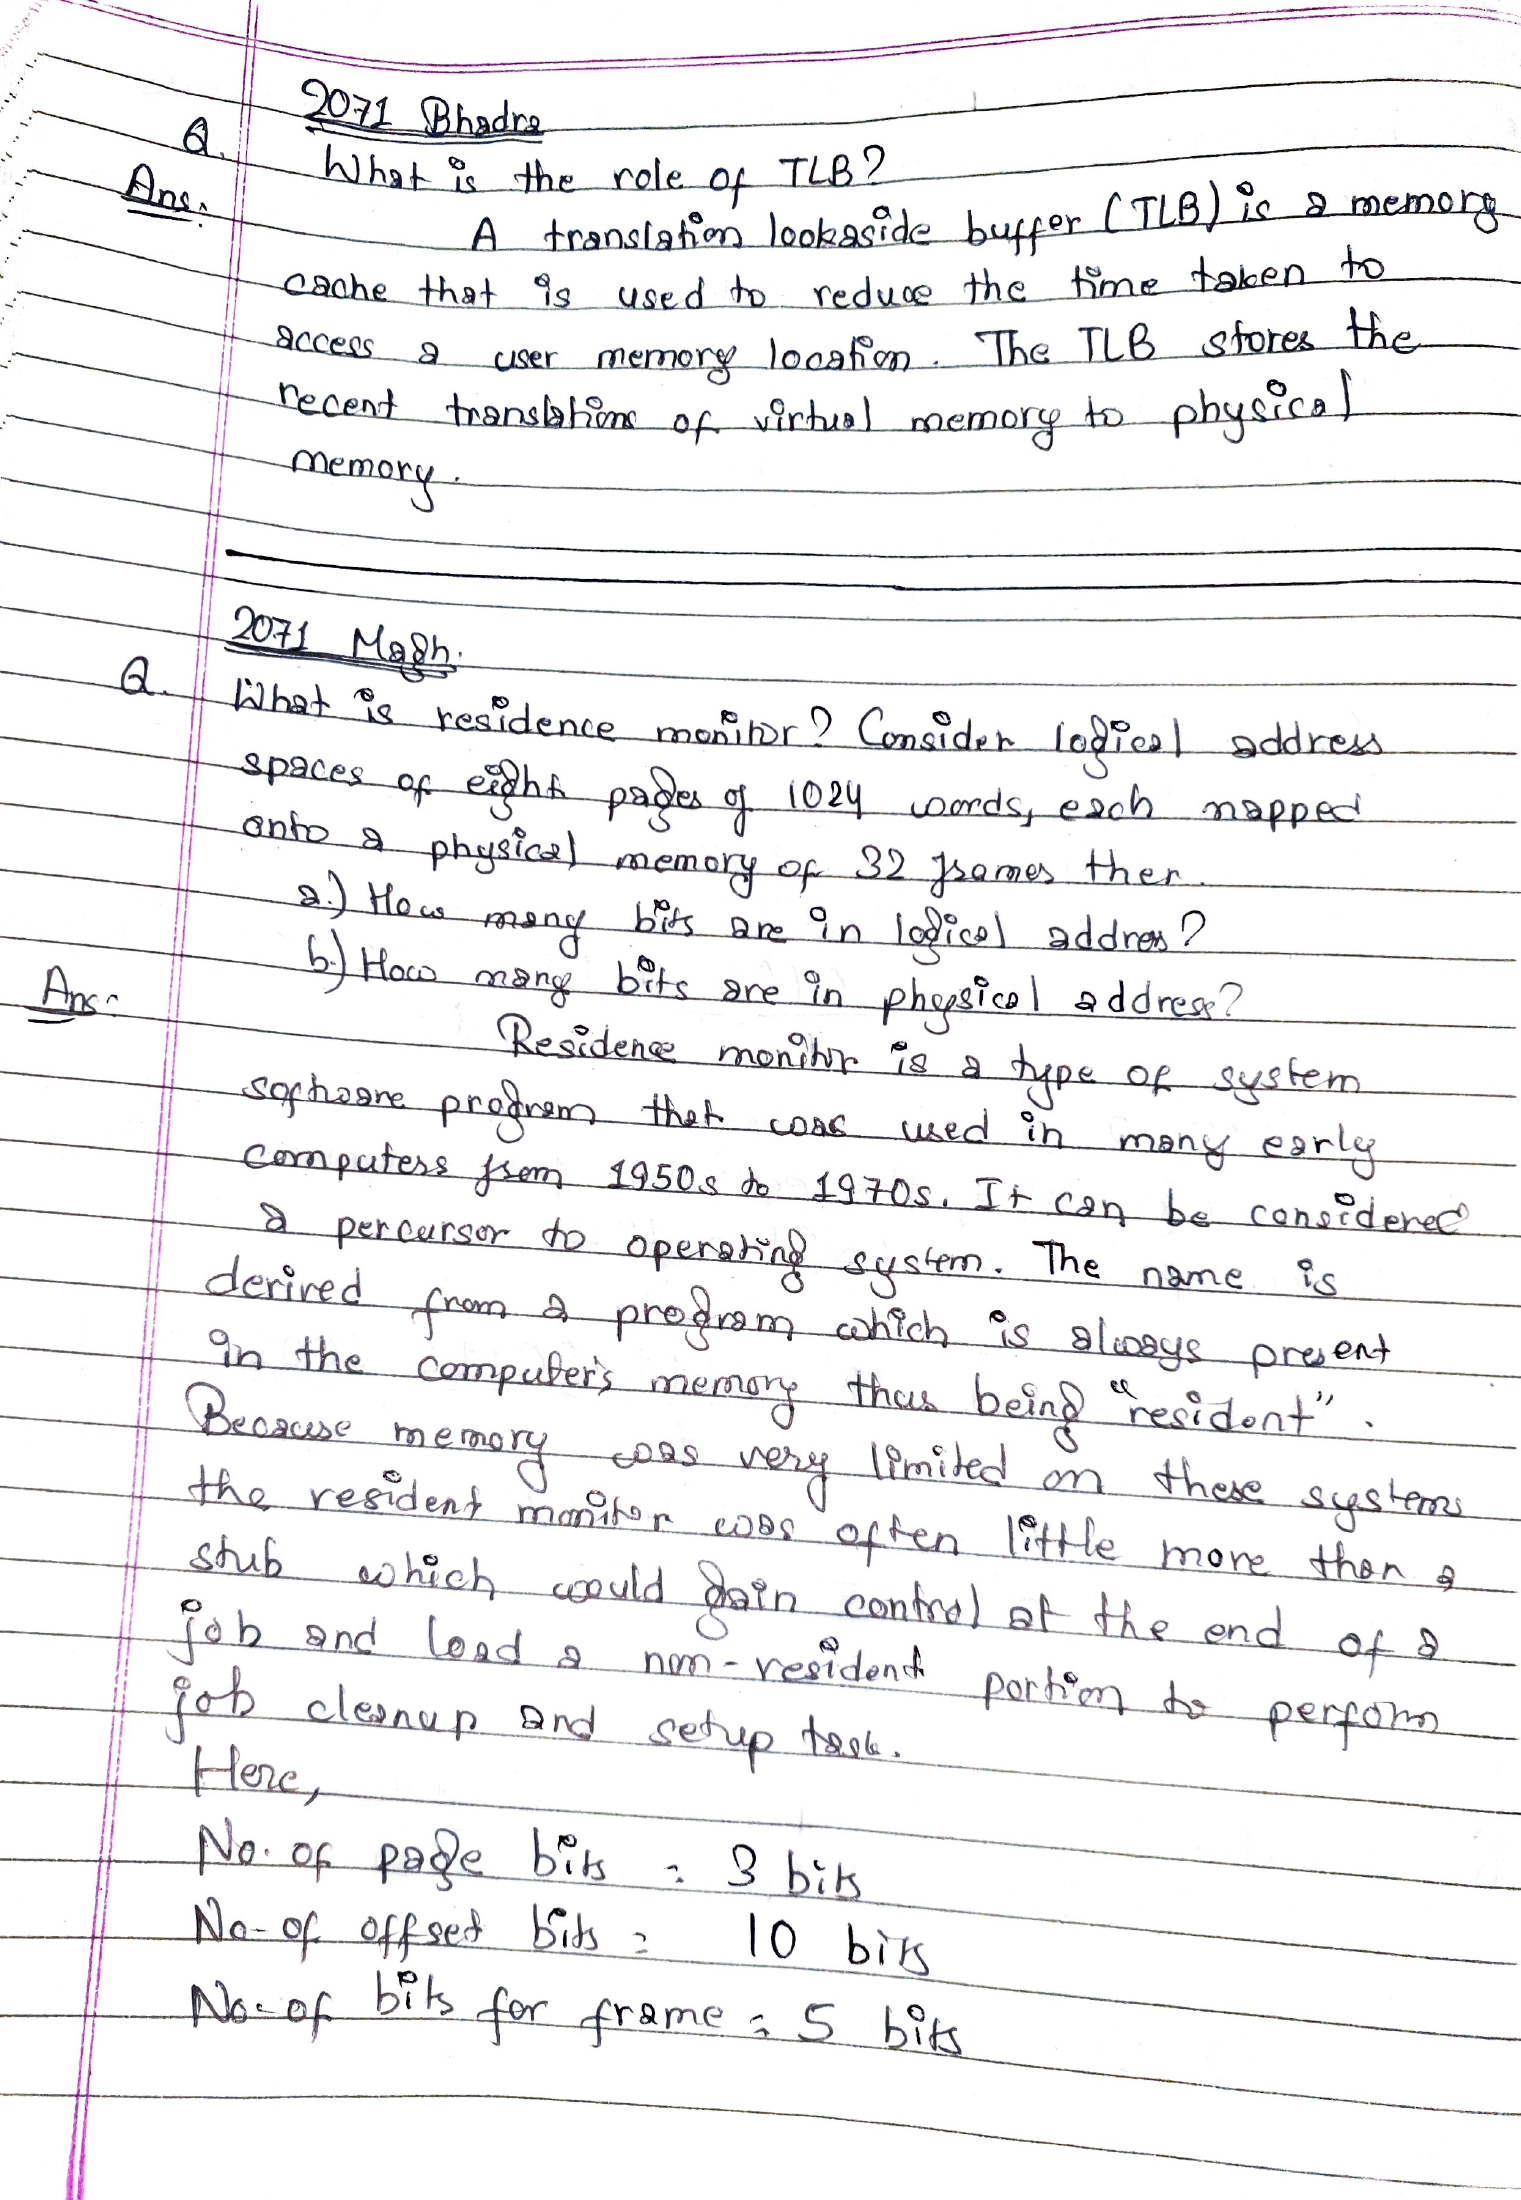 2071 Bhadra
Q. What is the role of TLB?
Ans. A translation lookaside buffer (TLB) is a memory
cache that is used to reduce the time taken to
access a user memory location. The TLB stores the
recent translations of virtual memory to physical
memory.
2071 Magh.
Q. What is residence monitor? Consider logical address
spaces of eight pages of 1024 words, each mapped
onto a physical memory of 32 frames then.
a.) How many bits are in logical address?
b.) How many bits are in physical address?
Ans: Residence monitor is a type of system
software program that was used in many early
computers from 1950s to 1970s. It can be considered
a percursor to operating system. The name is
derived from a program which is always present
in the computer's memory thus being "resident".
Because memory was very limited on these systems
the resident monitor was often little more than a
stub which would gain control at the end of a
job and load a non-resident portion to perform
job cleanup and setup task.
Here,
No. of page bits = 3 bits
No. of offset bits = 10 bits
No. of bits for frame = 5 bits